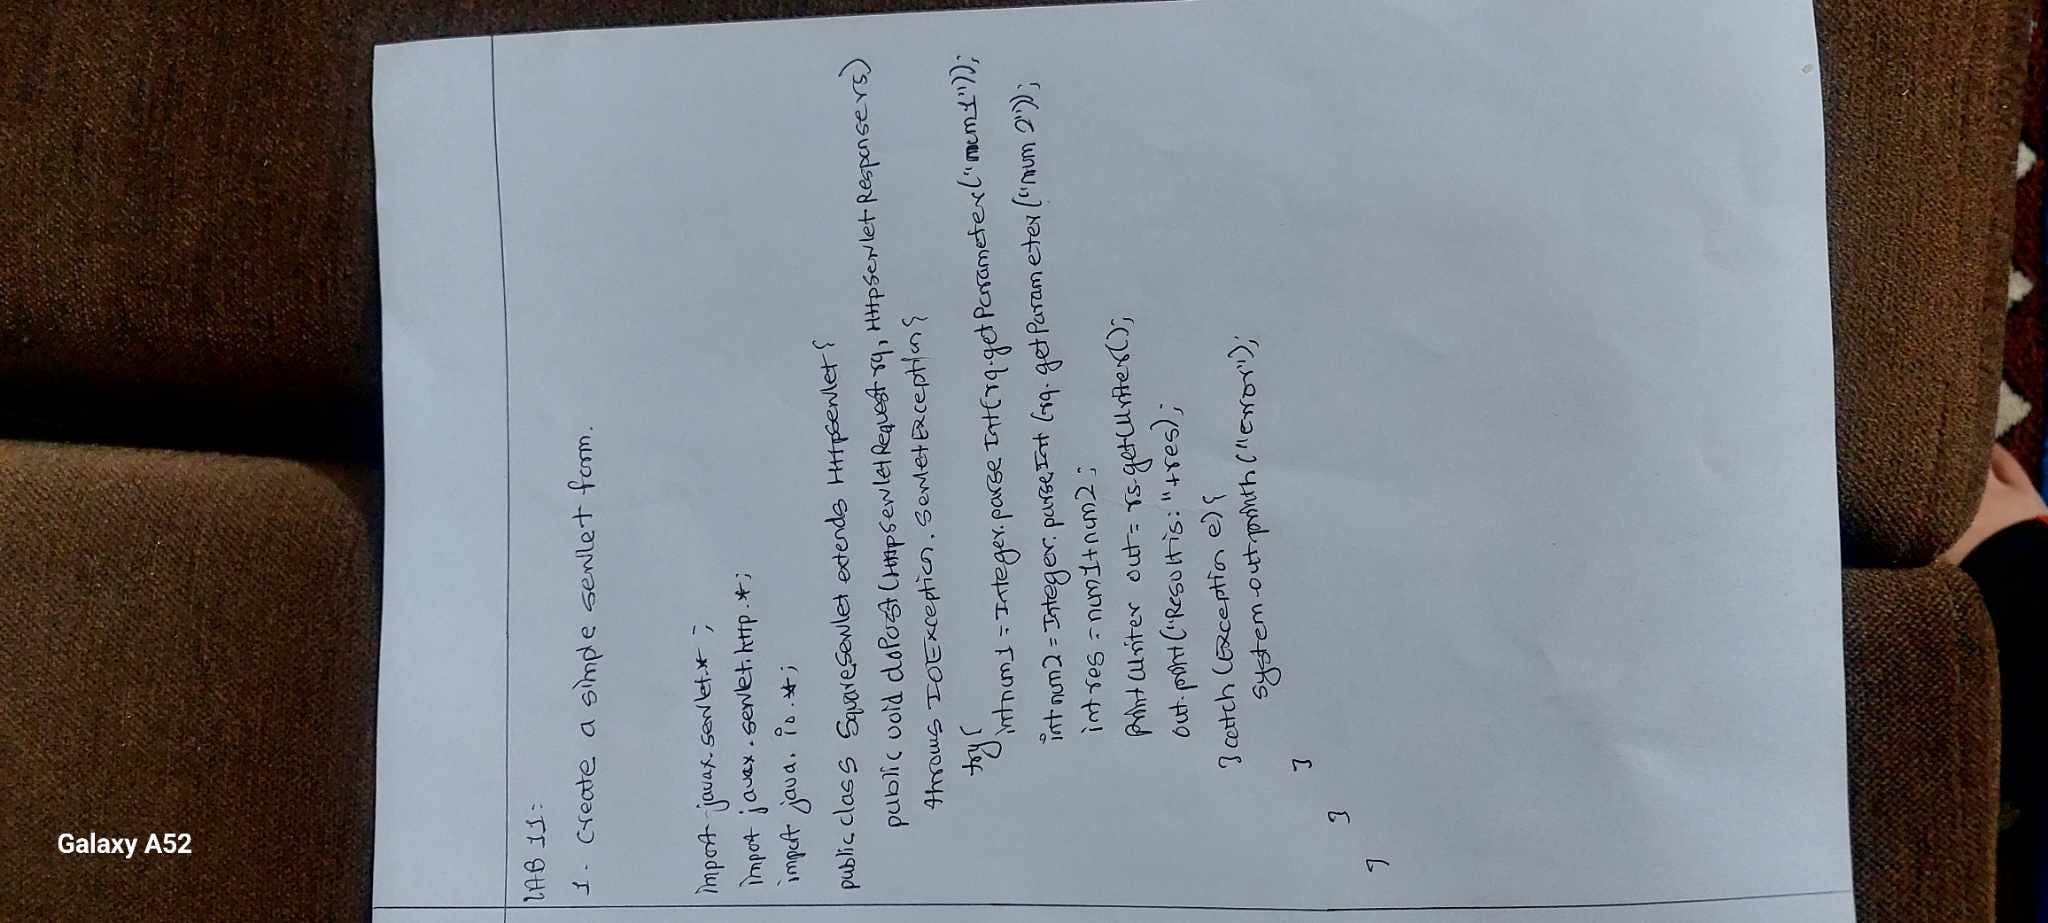 Galaxy A52
LAB 11:
1. Create a simple servlet form.
import javax.servlet.*;
import javax.servlet.http.*;
import java.io.*;
public class SquareServlet extends HttpServlet{
public void doPost(HttpServletRequest rq, HttpServletResponse rs)
throws IOException, ServletException{
try{
int num1 = Integer.parseInt(rq.getParameter("num1"));
int num2 = Integer.parseInt(rq.getParameter("num2"));
int res = num1+num2;
PrintWriter out = rs.getWriter();
out.print("Result is: "+res);
}catch (Exception e){
system.out.println("error");
}
}
}